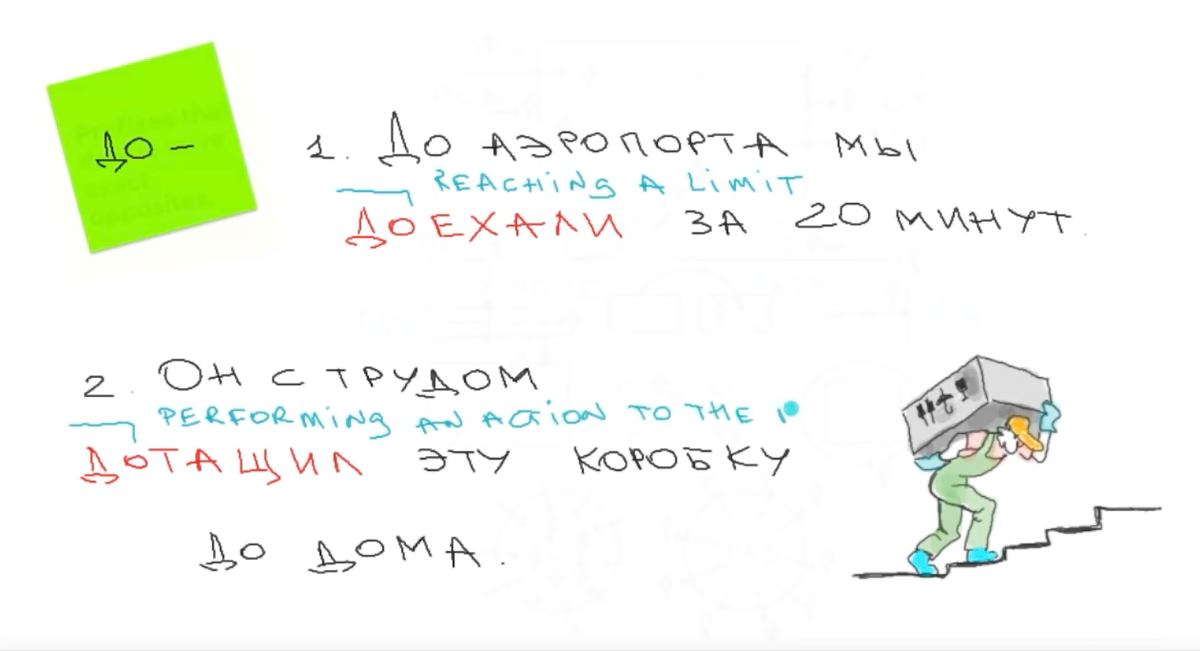 ДО –
1. ДО АЭРОПОРТА МЫ
REACHING A LIMIT
ДОЕХАЛИ ЗА 20 МИНУТ.
2. ОН С ТРУДОМ
PERFORMING AN ACTION TO THE
ДОТАЩИЛ ЭТУ КОРОБКУ
ДО ДОМА.